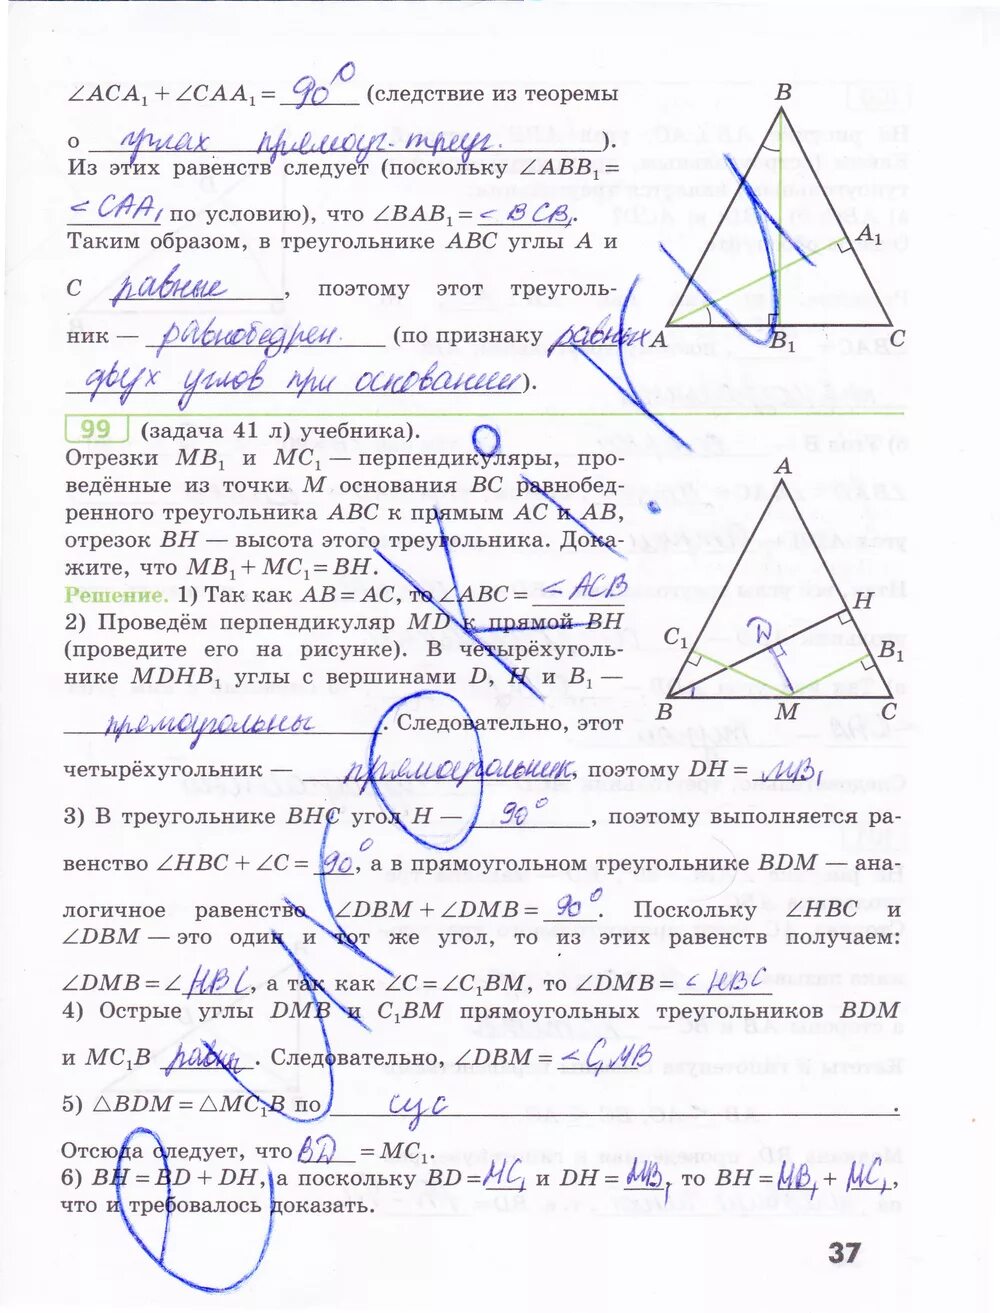 ∠ACA₁ + ∠CAA₁ = 90° (следствие из теоремы
о углах прямоуг. треуг. ).
Из этих равенств следует (поскольку ∠ABB₁ =
∠CAA₁ по условию), что ∠BAB₁ = ∠BCB₁.
Таким образом, в треугольнике ABC углы A и
C равные, поэтому этот треуголь-
ник — равнобедрен. (по признаку равных
двух углов при основании).
B
A₁
A
B₁
C
99 (задача 41 л) учебника).
Отрезки MB₁ и MC₁ — перпендикуляры, про-
ведённые из точки M основания BC равнобед-
ренного треугольника ABC к прямым AC и AB,
отрезок BH — высота этого треугольника. Дока-
жите, что MB₁ + MC₁ = BH.
Решение. 1) Так как AB = AC, то ∠ABC = ∠ACB
2) Проведём перпендикуляр MD к прямой BH
(проведите его на рисунке). В четырёхуголь-
нике MDHB₁ углы с вершинами D, H и B₁ —
прямоугольны. Следовательно, этот
A
H
C₁
D
B₁
B
M
C
четырёхугольник — прямоугольник, поэтому DH = MB₁
3) В треугольнике BHC угол H — 90°, поэтому выполняется ра-
венство ∠HBC + ∠C = 90°, а в прямоугольном треугольнике BDM — ана-
логичное равенство ∠DBM + ∠DMB = 90°. Поскольку ∠HBC и
∠DBM — это один и тот же угол, то из этих равенств получаем:
∠DMB = ∠HBC, а так как ∠C = ∠C₁BM, то ∠DMB = ∠HBC
4) Острые углы DMB и C₁BM прямоугольных треугольников BDM
и MC₁B равны. Следовательно, ∠DBM = ∠C₁MB
5) △BDM = △MC₁B по сус.
Отсюда следует, что BD = MC₁.
6) BH = BD + DH, а поскольку BD = MC₁ и DH = MB₁, то BH = MB₁ + MC₁,
что и требовалось доказать.
37